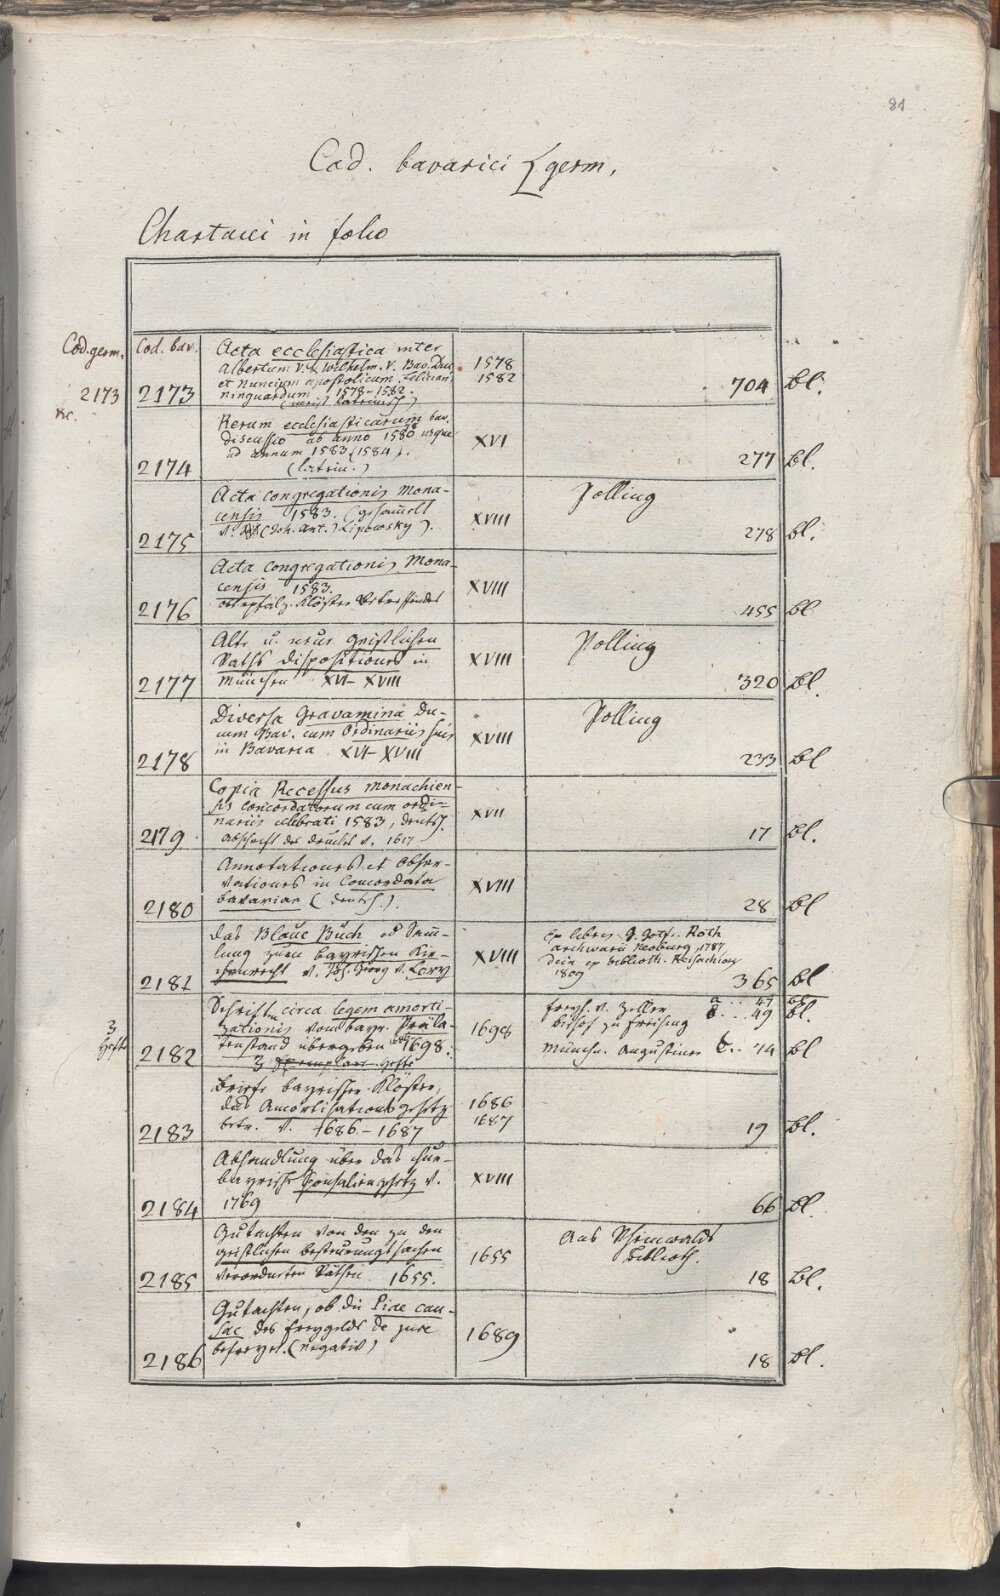 81
Cod. bavarici { germ.
Chartacei in folio
Cod. germ. Cod. bav.
2173 &c.
2173 Acta ecclesiastica inter
Albertum V. & Wilhelm. V. Bav. Duc.
et Nuncium apostolicum Felician
ninguardum 1578-1582.
(meist lateinisch)
1578
1582
704 Bl.
2174 Rerum ecclesiasticarum bav.
discussio ab anno 1580 usque
ad annum 1583 (1584).
(latein.)
XVI
277 Bl.
2175 Acta congregationis Mona-
censis 1583. (gesamelt
v. (Joh. Ant.) Lipowsky).
XVIII
Polling
278 Bl.
2176 Acta congregationis Mona-
censis 1583.
oberpfälz. Klöster betreffendes
XVIII
455 Bl
2177 Alte u. neue Geistlichen
Raths dispositiones in
München XVI-XVIII
XVIII
Polling
320 Bl.
2178 Diversa Gravamina Du-
cum Bav. cum Ordinariis suis
in Bavaria XVI-XVIII
XVIII
Polling
233 Bl
2179 Copia Recessus monachien-
sis concordatorum cum ordi-
nariis celebrati 1583, deutsch.
Abschrift des Drucks v. 1617
XVII
17 Bl.
2180 Annotationes et Obser-
vationes in Concordata
bavariae (deutsch.).
XVIII
28 Bl
2181 Das Blaue Buch od Sam̄-
lung zum bayrischen Kir-
chenrecht v. Joh. Georg v. Lory
XVIII
Ex libris J. Roth
archivarii Neoburg. 1787
dein ex biblioth. Reisachior
1809
365 Bl
3 Hefte
2182 Schriften circa legem amorti-
zationis vom bayr. Präla-
tenstand übergeben 1698.
3 Exemplare Hefte
1698
Freyh. v. Zeller a... 47 Bl.
bischof zu Freising b... 49 Bl.
Münchn. Augustiner c.. 74 Bl
2183 Briefe bayrischer Klöster,
das Amortisationsgesetz
betr. v. 1686-1687
1686
1687
19 Bl.
2184 Abhandlung über das chur-
bayrische Sponsaliengesetz v.
1769
XVIII
66 Bl.
2185 Gutachten von den zu den
geistlichen besteurungssachen
verordneten Räthen 1655.
1655
Aus Rheinwalds
Biblioth.
18 Bl.
2186 Gutachten, ob die Piae cau-
sae des Freygelds de jure
befreyet. (negativ)
1689
18 Bl.